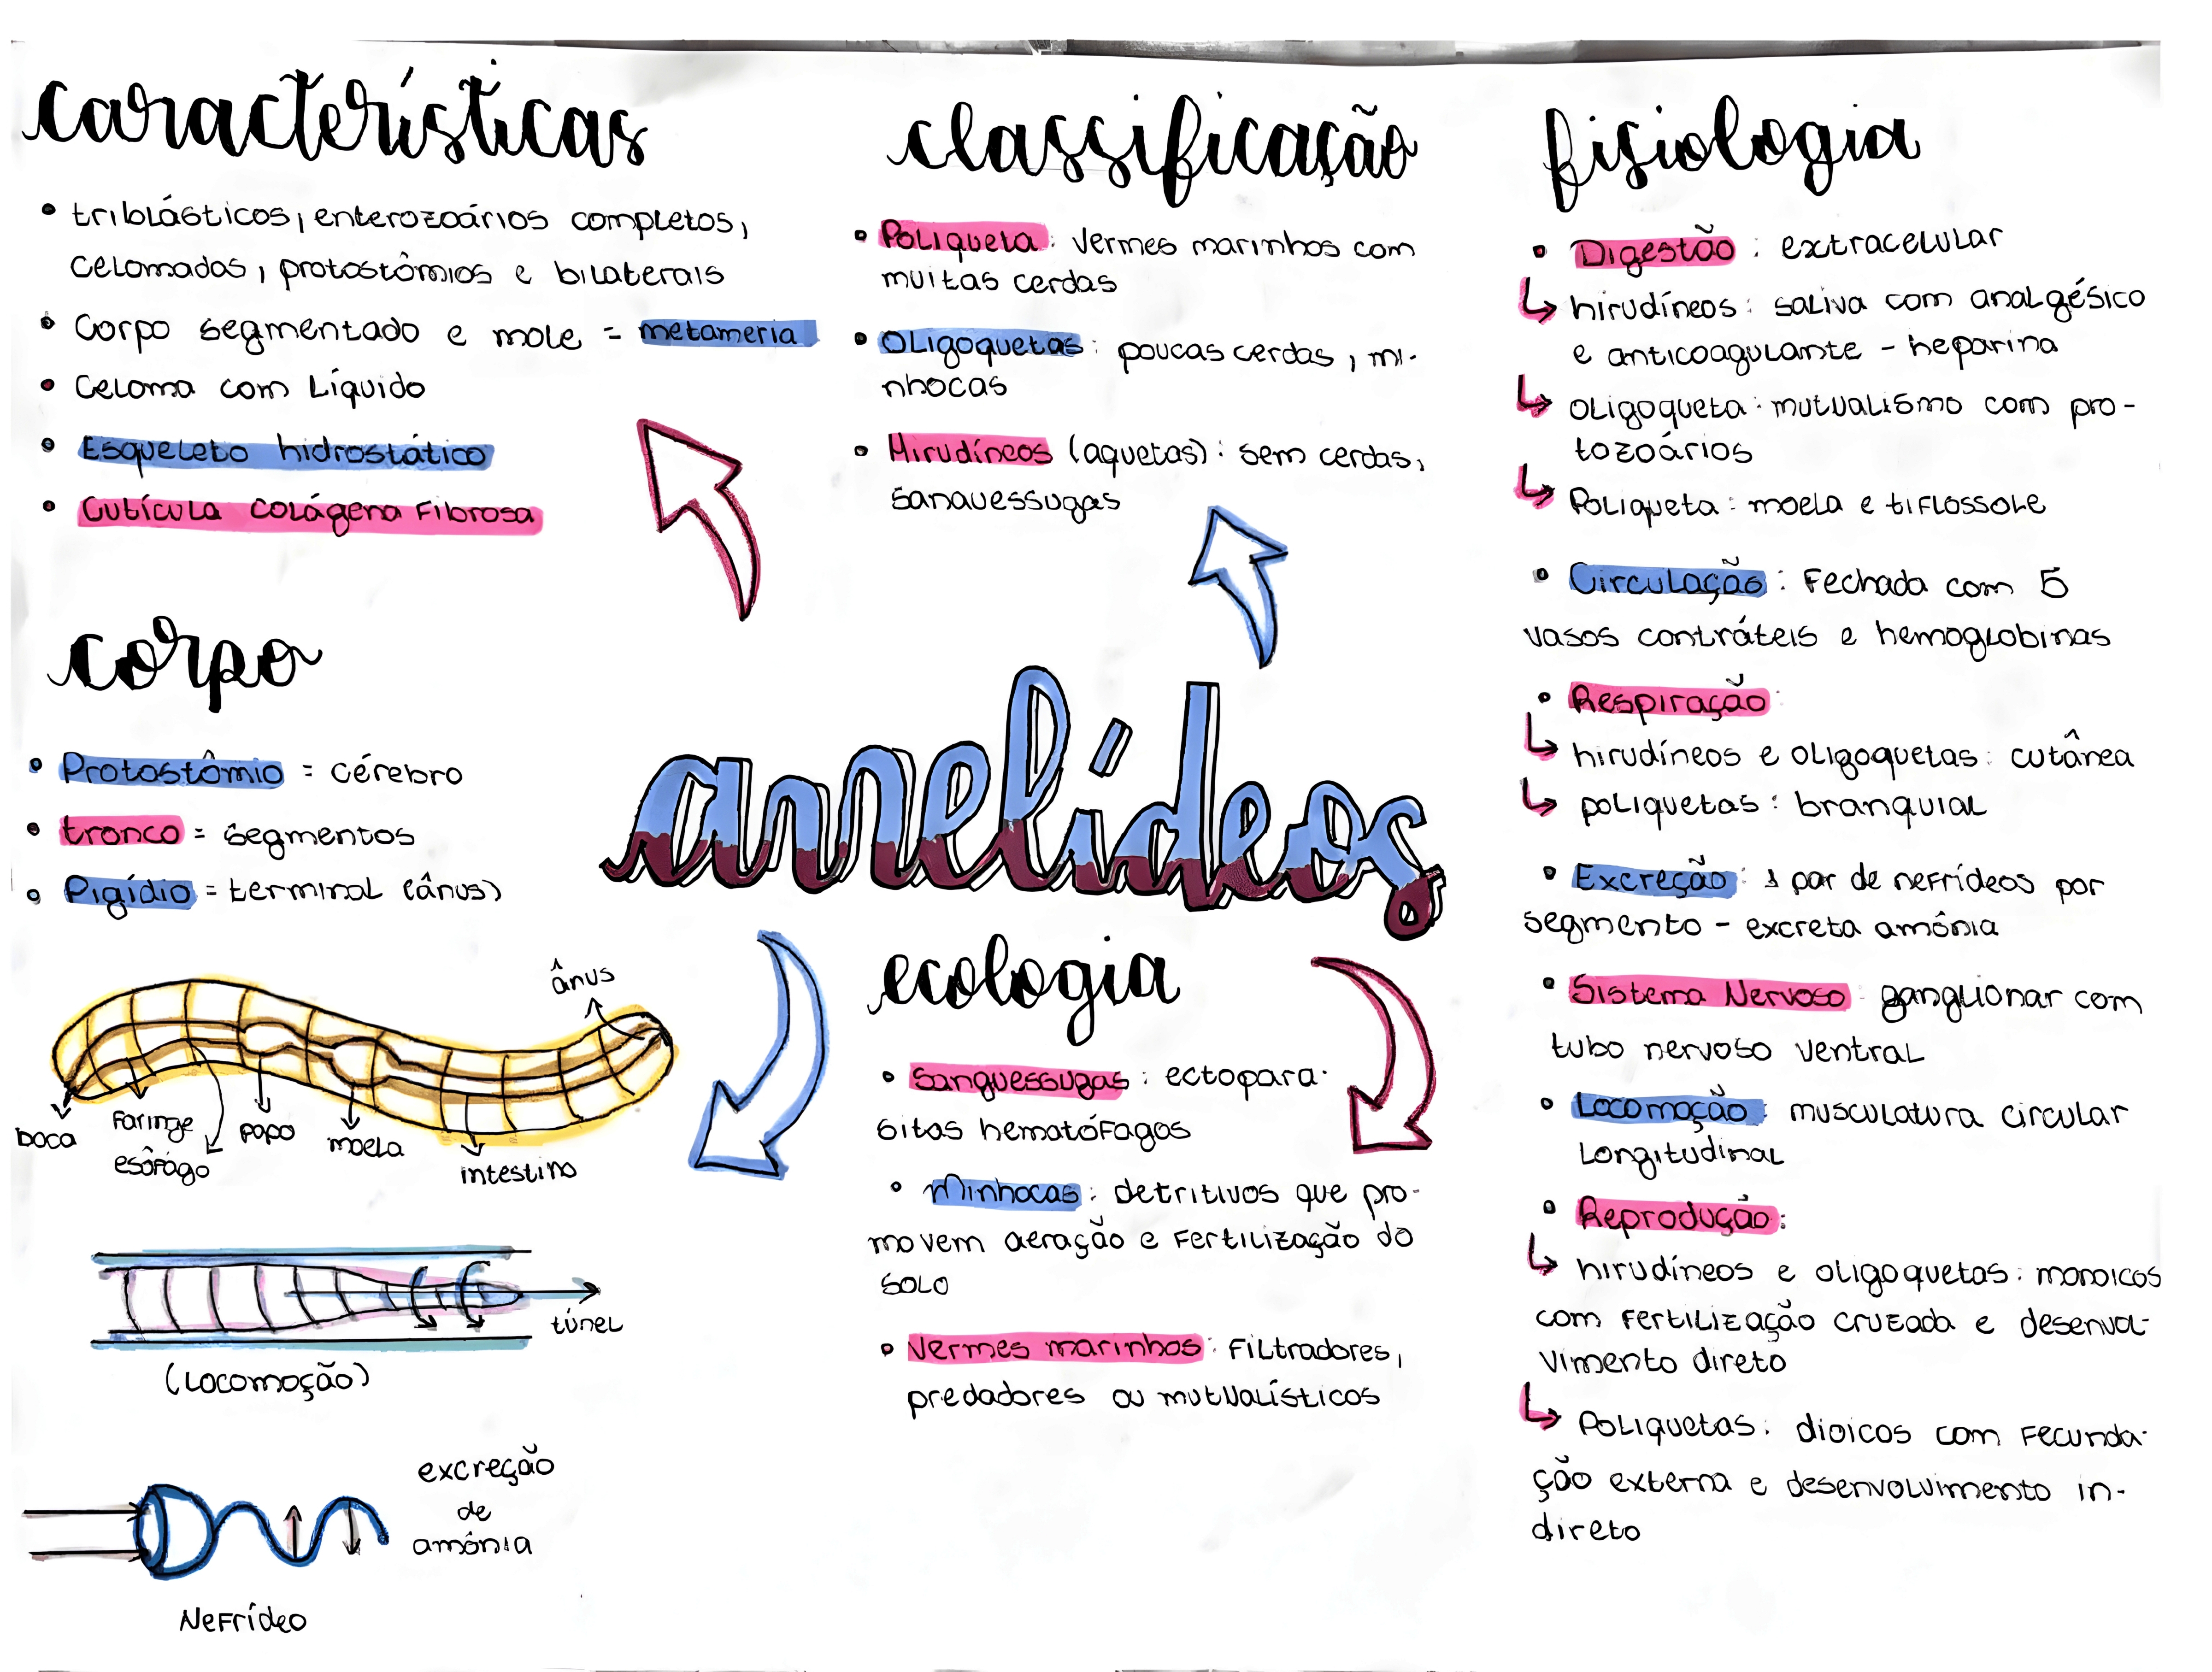 características
• triblásticos, enterozoários completos,
celomados, protostômios e bilaterais
• Corpo segmentado e mole = metameria
• Celoma com Líquido
• Esqueleto hidrostático
• Cutícula colágena Fibrosa
corpo
• Protostômio = cérebro
• tronco = segmentos
• Pigídio = terminal (ânus)
ânus
boca
Faringe
esôfago
papo
moela
intestino
túnel
(Locomoção)
excreção
de
amônia
Nefrídeo
classificação
• Poliqueta: vermes marinhos com
muitas cerdas
• Oligoquetas: poucas cerdas, mi-
nhocas
• Hirudíneos (aquetas): sem cerdas,
sanavessugas
anelídeos
ecologia
• Sanguessugas: ectopara-
sitas hematófagos
• Minhocas: detritivos que pro-
movem aeração e fertilização do
solo
• Vermes marinhos: Filtradores,
predadores ou mutualísticos
fisiologia
• Digestão: extracelular
↳ hirudíneos: saliva com analgésico
e anticoagulante - heparina
↳ oligoqueta: mutualismo com pro-
tozoários
↳ Poliqueta: moela e tiflossole
• Circulação: Fechada com 5
vasos contráteis e hemoglobinas
• Respiração:
↳ hirudíneos e oligoquetas: cutânea
↳ poliquetas: branquial
• Excreção: 1 par de nefrídeos por
segmento - excreta amônia
• Sistema Nervoso: ganglionar com
tubo nervoso ventral
• Locomoção: musculatura circular
Longitudinal
• Reprodução:
↳ hirudíneos e oligoquetas: monoicos
com fertilização cruzada e desenvol-
vimento direto
↳ Poliquetas: dioicos com fecunda-
ção externa e desenvolvimento in-
direto